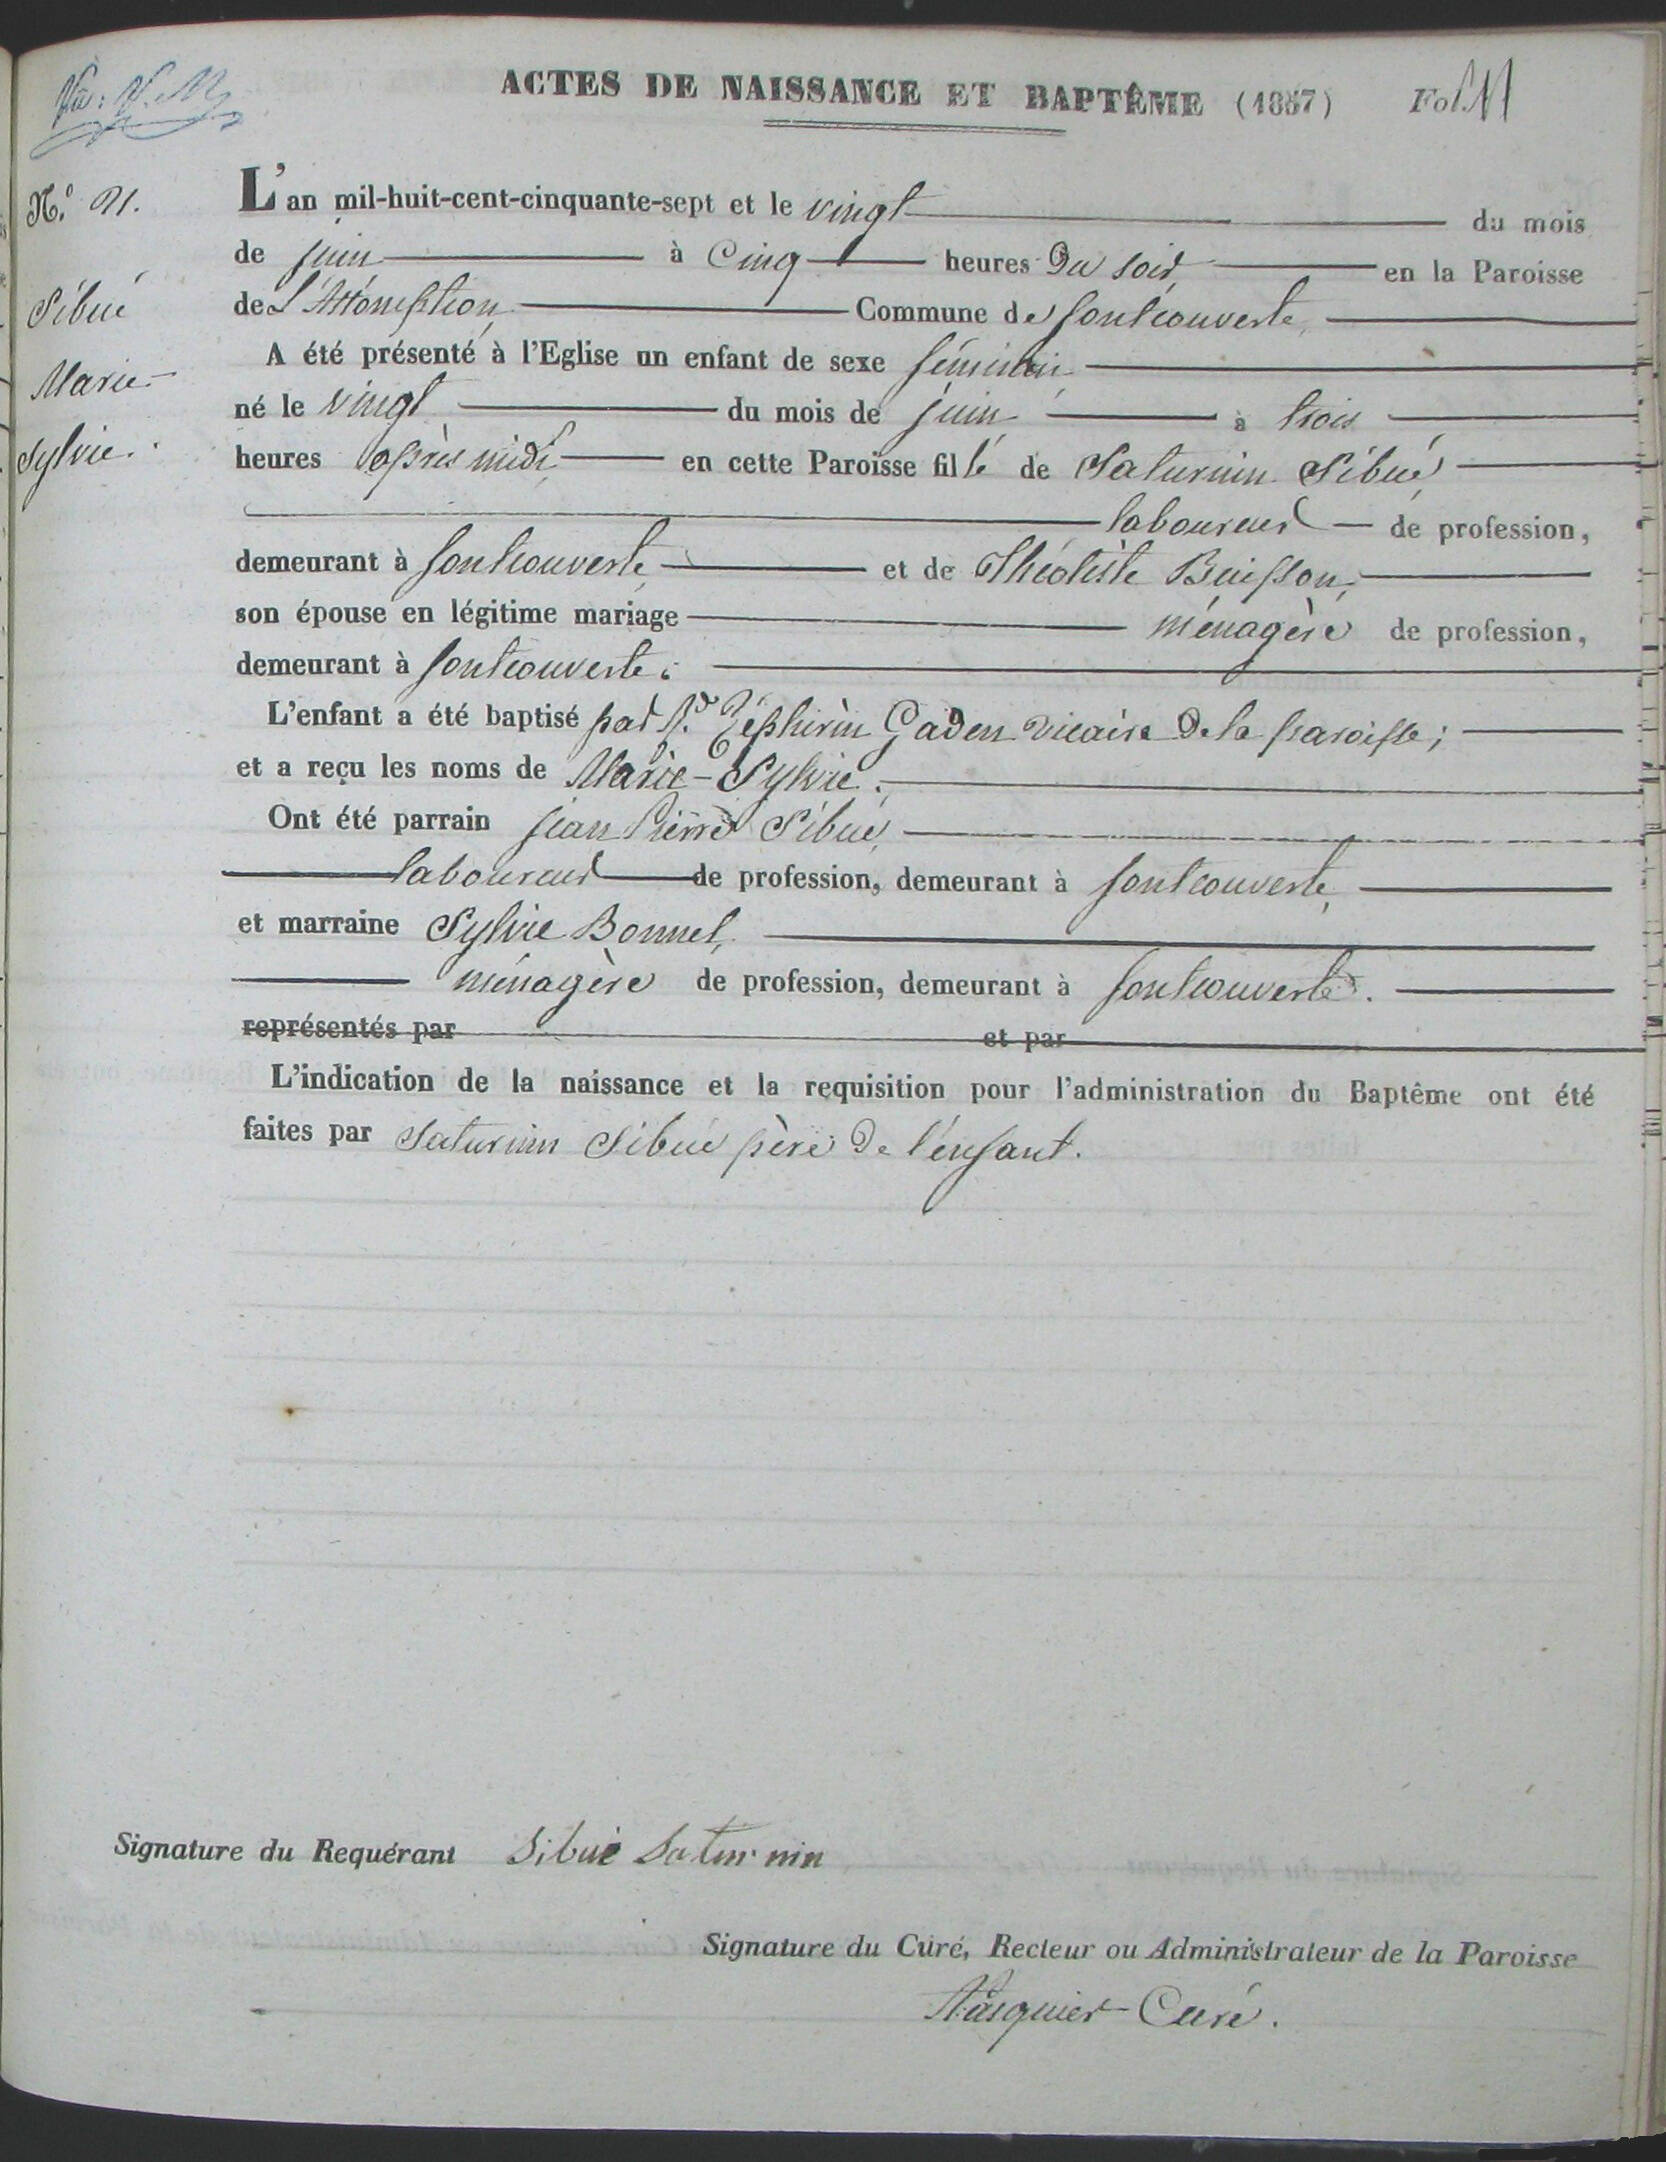 ACTES DE NAISSANCE ET BAPTÊME (1857) Fol. 11
N.° 21.
Sibué
Marie-
Sylvie.
L'an mil-huit-cent-cinquante-sept et le vingt du mois
de juin à cinq heures du soir, en la Paroisse
de L'Assomption, Commune de fontcouverte,
A été présenté à l'Eglise un enfant de sexe féminin
né le vingt du mois de juin à trois
heures après midi, en cette Paroisse fille de Saturnin Sibué,
laboureur de profession,
demeurant à fontcouverte, et de Théotiste Buisson,
son épouse en légitime mariage ménagère de profession,
demeurant à fontcouverte.
L'enfant a été baptisé par R.d Zéphirin Gaden vicaire de la paroisse;
et a reçu les noms de Marie-Sylvie.
Ont été parrain jean Pierre Sibué,
laboureur de profession, demeurant à fontcouverte,
et marraine Sylvie Bonnel,
ménagère de profession, demeurant à fontcouverte.
représentés par et par
L'indication de la naissance et la requisition pour l'administration du Baptême ont été
faites par Saturnin Sibué père de l'enfant.
Signature du Requérant Sibué Saturnin
Signature du Curé, Recteur ou Administrateur de la Paroisse
Pasquier Curé.